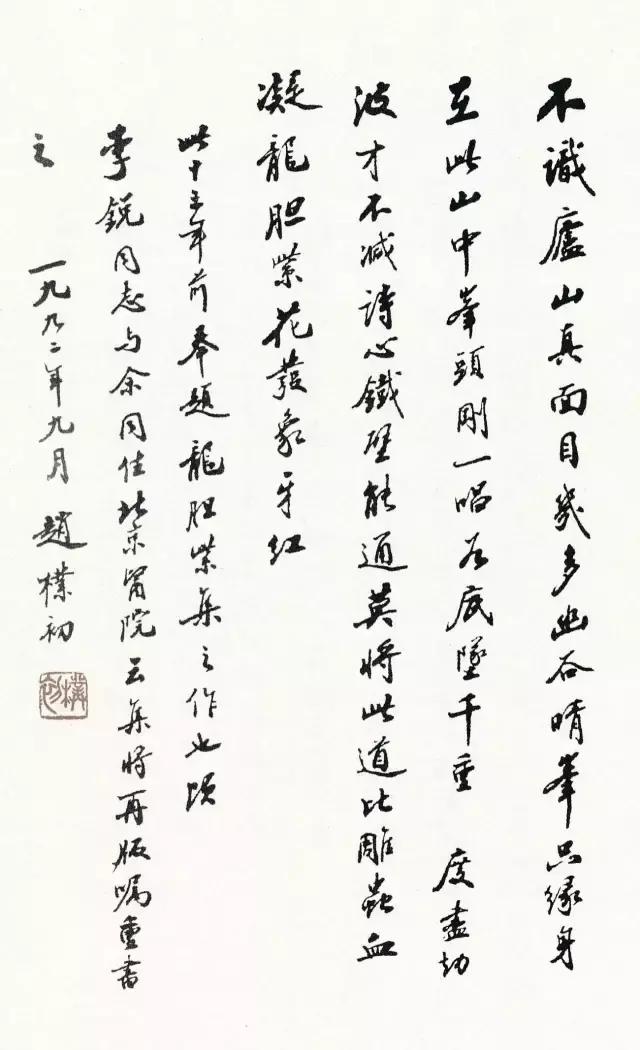 不識廬山真面目幾多幽谷晴峯只緣身
在此山中峯頭剛一唱谷底墜千重 度盡劫
波才不減詩心鐵壁能通莫將此道比雕蟲血
凝龍胆紫花發象牙紅
此十五年前奉題龍胆紫集之作也頃
李銳同志与余同住北京醫院云集將再版囑重書
之 一九九二年九月 趙樸初
樸初